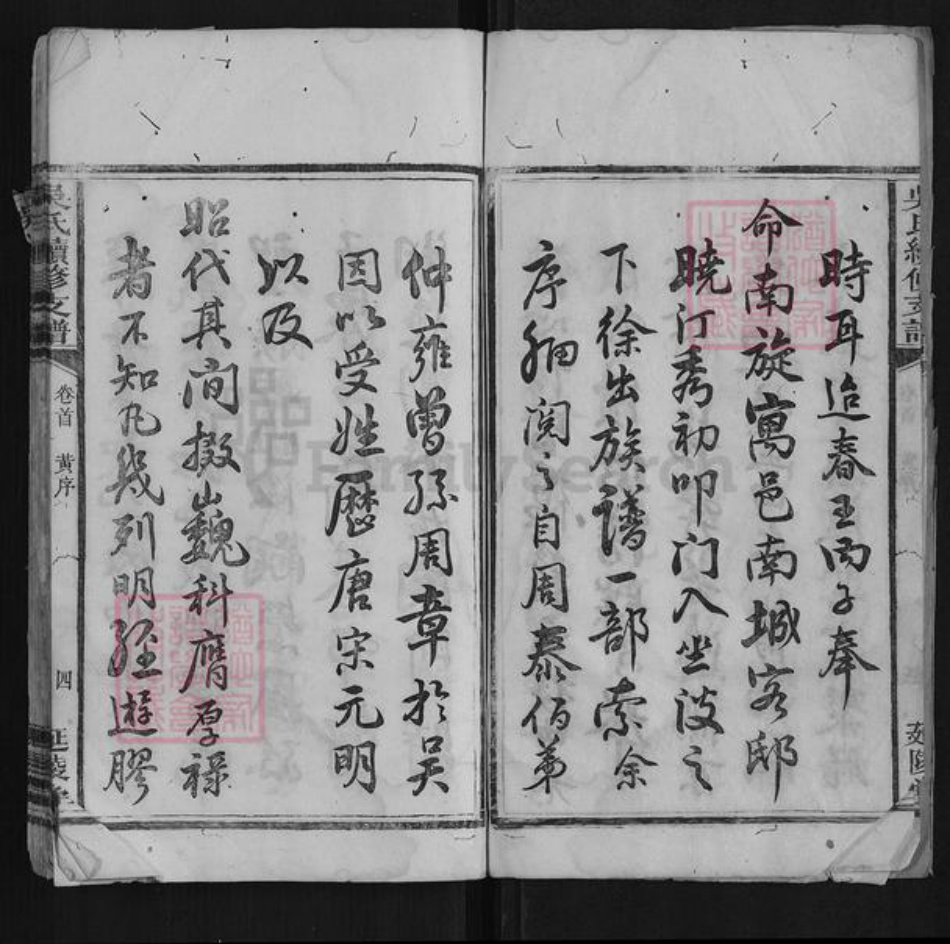 時耳迨春王丙子奉
命南旋寓邑南城客邸
曉汀秀初叩门入坐談之
下徐出族譜一部索余
序細閱之自周泰伯弟
仲雍曾孫周章於吳
因以受姓歷唐宋元明
以及
昭代其间掇巍科膺厚祿
者不知凡幾列明經遊膠
吳氏續修支譜
卷首
黃序
四
延陵堂
FamilySearch